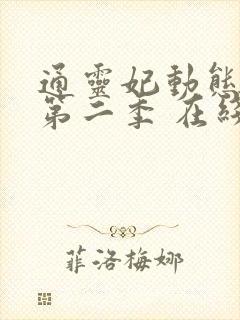 通靈妃動態
第二季 在
菲洛梅娜